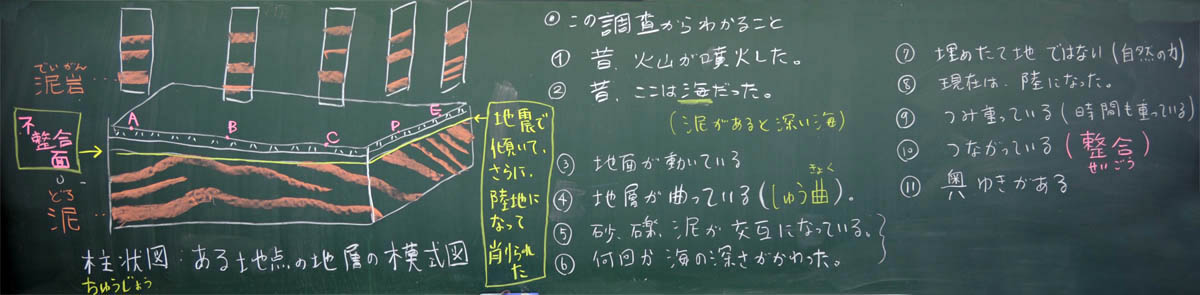 でいがん
泥岩
不
整合
面
どろ
泥
A
B
C
D
E
地震で
傾いて、
さらに、
陸地に
なって
削られた
柱状図:ある地点の地層の模式図
ちゅうじょう
◎この調査からわかること
① 昔、火山が噴火した。
② 昔、ここは海だった。
(泥があると深い海)
③ 地面が動いている
きょく
④ 地層が曲っている(しゅう曲)。
⑤ 砂、礫、泥が交互になっている、
⑥ 何回か海の深さがかわった。
⑦ 埋めたて地ではない(自然の力)
⑧ 現在は、陸になった。
⑨ つみ重っている(時間も重っている)
⑩ つながっている(整合)
せいごう
⑪ 奥ゆきがある